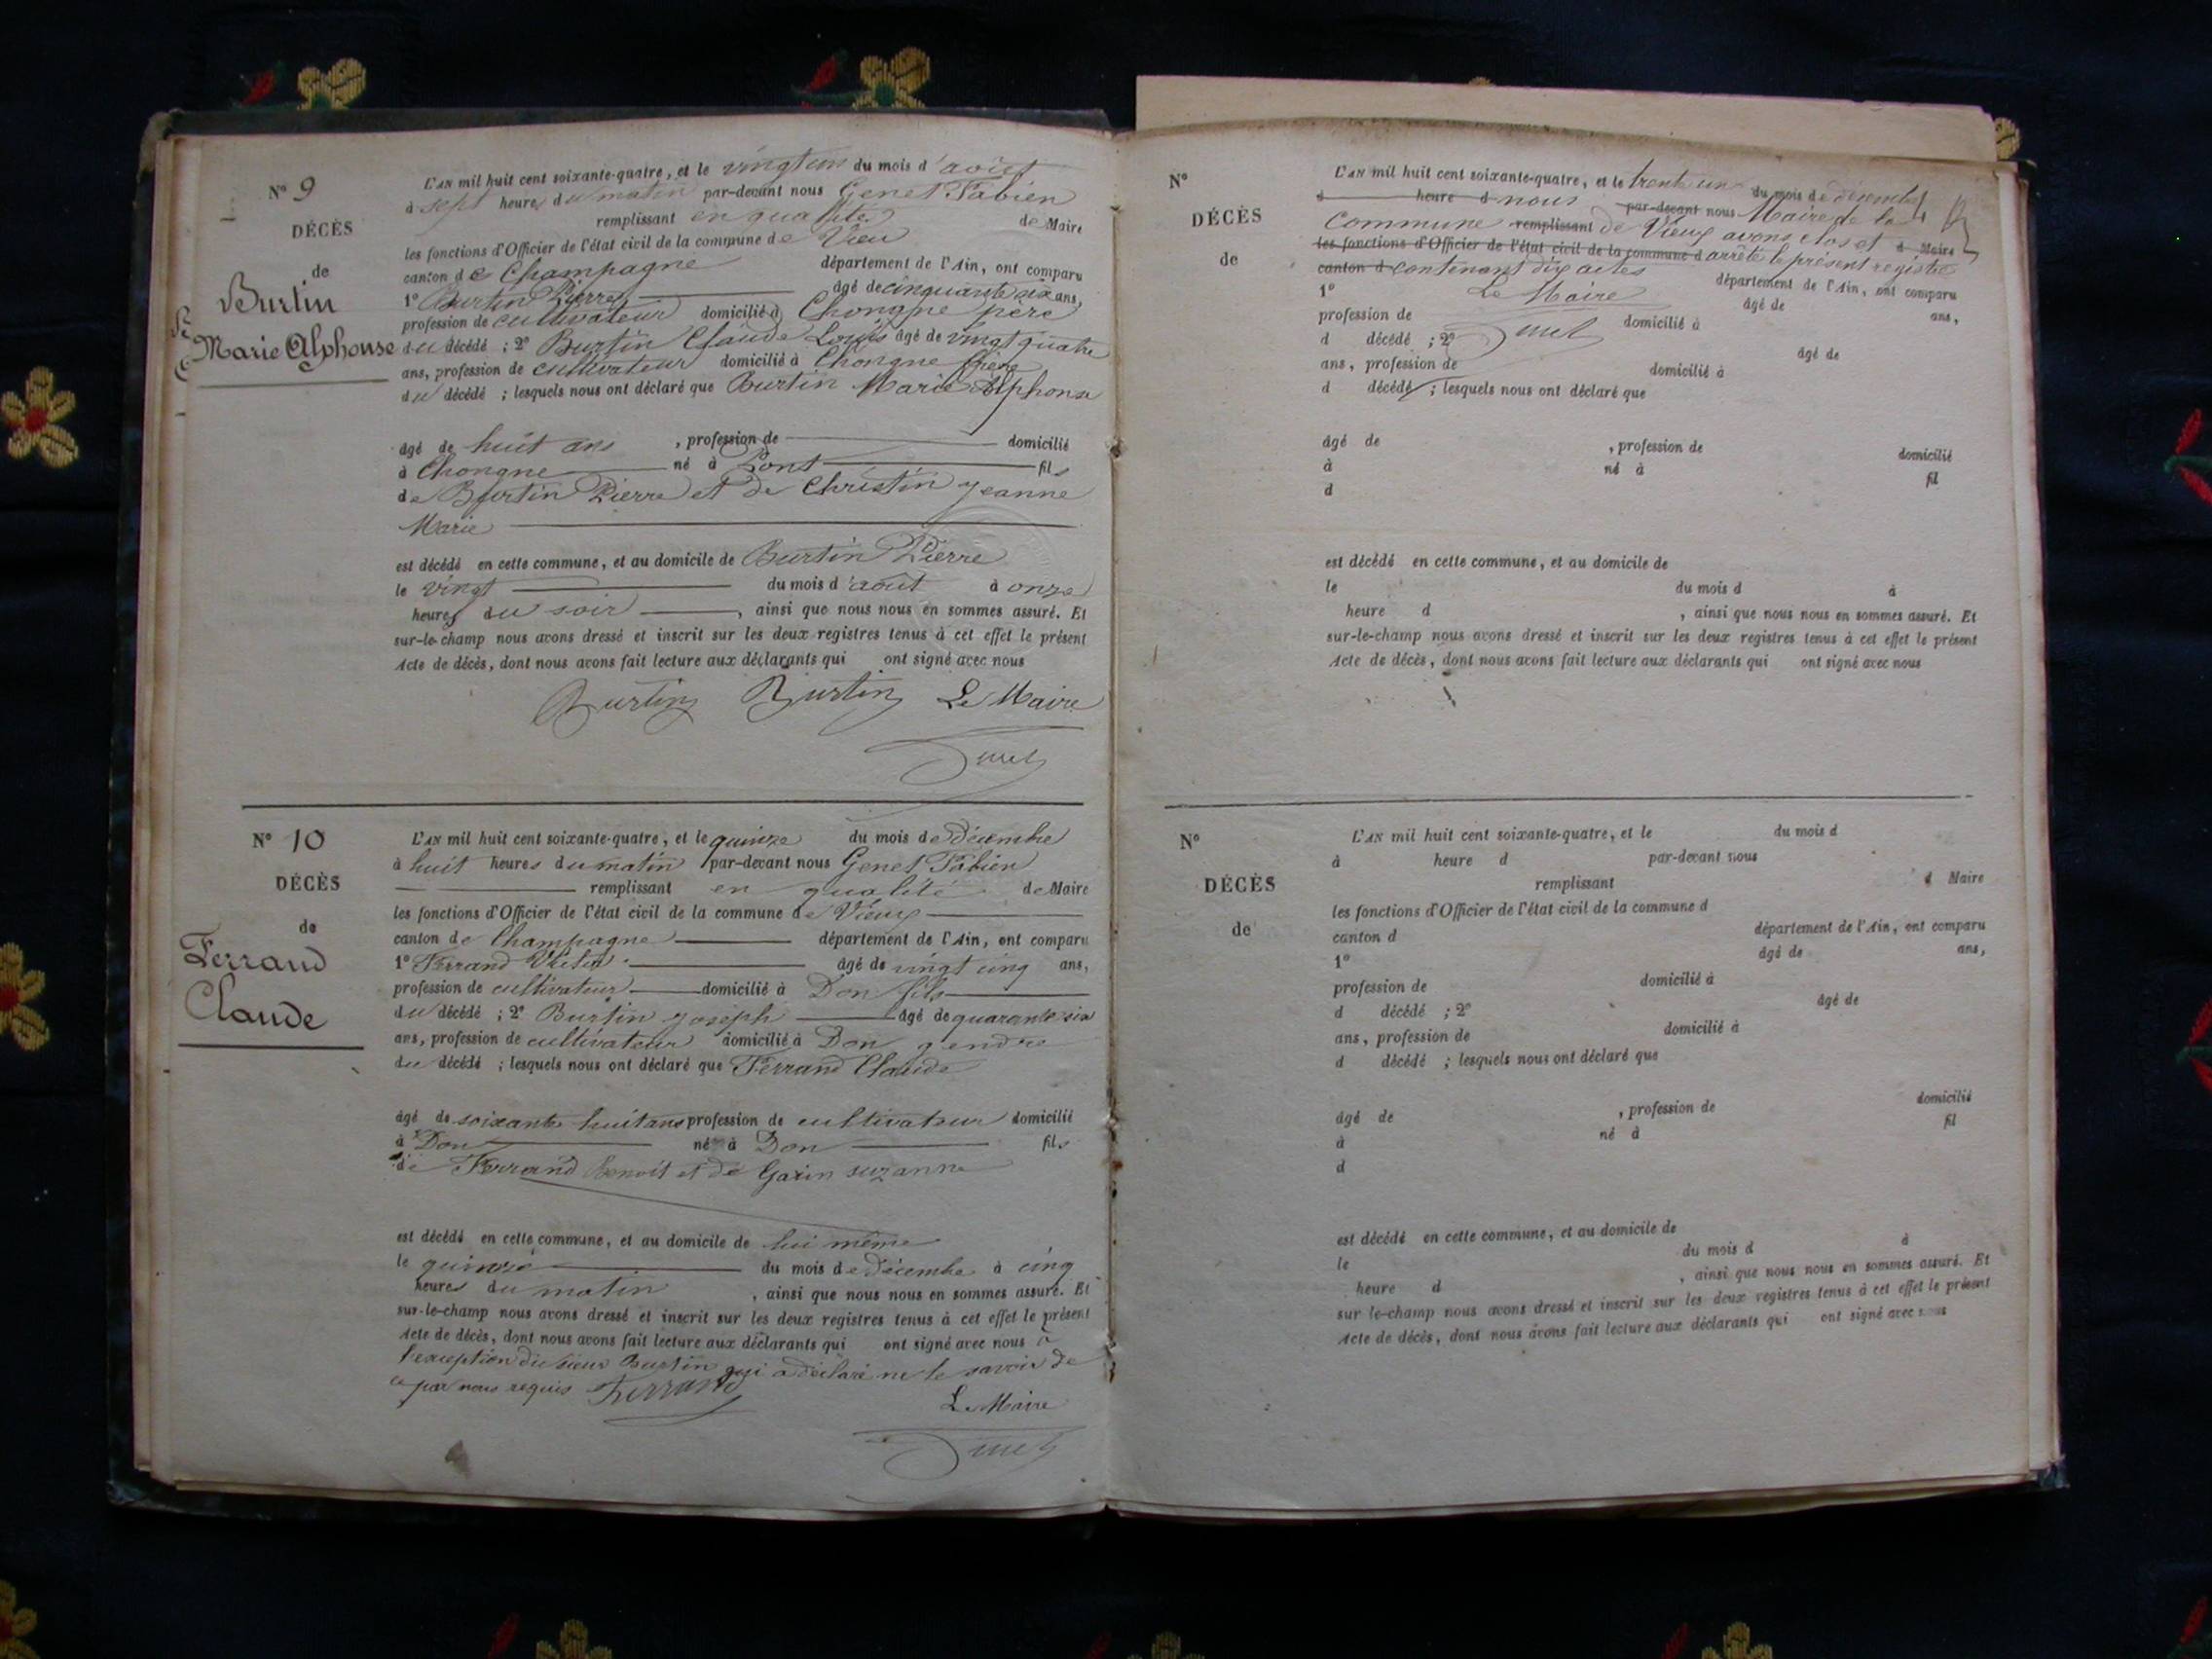 N° 9
DÉCÈS
de
Burtin
Marie Alphonse
L'AN mil huit cent soixante-quatre, et le vingt un du mois d'août
à sept heures du matin par-devant nous Genet Fabien
remplissant en qualité de Maire
les fonctions d'Officier de l'état civil de la commune de Vieu
canton de Champagne département de l'Ain, ont comparu
1° Burtin Pierre âgé de cinquante six ans,
profession de cultivateur domicilié à Chongne père
du décédé ; 2° Burtin Claude Louis âgé de vingt quatre
ans, profession de cultivateur domicilié à Chongne frère
du décédé ; lesquels nous ont déclaré que Burtin Marie Alphonse
âgé de huit ans , profession de domicilié
à Chongne né à Pont fils
de Burtin Pierre et de Christin Jeanne
Marie
est décédé en cette commune, et au domicile de Burtin Pierre
le vingt du mois d'août à onze
heures du soir , ainsi que nous nous en sommes assuré. Et
sur-le-champ nous avons dressé et inscrit sur les deux registres tenus à cet effet le présent
Acte de décès, dont nous avons fait lecture aux déclarants qui ont signé avec nous
Burtin Burtin Le Maire
Genet
N° 10
DÉCÈS
de
Ferrand
Claude
L'AN mil huit cent soixante-quatre, et le quinze du mois de décembre
à huit heures du matin par-devant nous Genet Fabien
remplissant en qualité de Maire
les fonctions d'Officier de l'état civil de la commune de Vieux
canton de Champagne département de l'Ain, ont comparu
1° Ferrand Victor âgé de vingt cinq ans,
profession de cultivateur domicilié à Don fils
du décédé ; 2° Burtin Joseph âgé de quarante six
ans, profession de cultivateur domicilié à Don gendre
du décédé ; lesquels nous ont déclaré que Ferrand Claude
âgé de soixante huit ans profession de cultivateur domicilié
à Don né à Don fils
de Ferrand Benoit et de Garin suzanne
est décédé en cette commune, et au domicile de lui même
le quinze du mois de décembre à cinq
heures du matin , ainsi que nous nous en sommes assuré. Et
sur-le-champ nous avons dressé et inscrit sur les deux registres tenus à cet effet le présent
Acte de décès, dont nous avons fait lecture aux déclarants qui ont signé avec nous à
l'exception du sieur Burtin qui a déclaré ne le savoir de
ce par nous requis Ferrand
Le Maire
Genet
N°
DÉCÈS
de
L'AN mil huit cent soixante-quatre, et le trente un du mois de décembre
d heure d nous par-devant nous Maire de la
commune remplissant de Vieux avons clos et d Maire
les fonctions d'Officier de l'état civil de la commune d arrêté le présent registre
canton d contenant dix actes département de l'Ain, ont comparu
1° Le Maire âgé de ans,
profession de Genet domicilié à
d décédé ; 2° âgé de
ans, profession de domicilié à
d décédé ; lesquels nous ont déclaré que
âgé de , profession de domicilié
à né à fil
d
est décédé en cette commune, et au domicile de
le du mois d à
heure d , ainsi que nous nous en sommes assuré. Et
sur-le-champ nous avons dressé et inscrit sur les deux registres tenus à cet effet le présent
Acte de décès, dont nous avons fait lecture aux déclarants qui ont signé avec nous
N°
DÉCÈS
de
L'AN mil huit cent soixante-quatre, et le du mois d
à heure d par-devant nous
remplissant d Maire
les fonctions d'Officier de l'état civil de la commune d
canton d département de l'Ain, ont comparu
1° âgé de ans,
profession de domicilié à
d décédé ; 2° âgé de
ans, profession de domicilié à
d décédé ; lesquels nous ont déclaré que
âgé de , profession de domicilié
à né à fil
d
est décédé en cette commune, et au domicile de
le du mois d à
heure d , ainsi que nous nous en sommes assuré. Et
sur le-champ nous avons dressé et inscrit sur les deux registres tenus à cet effet le présent
Acte de décès, dont nous avons fait lecture aux déclarants qui ont signé avec nous